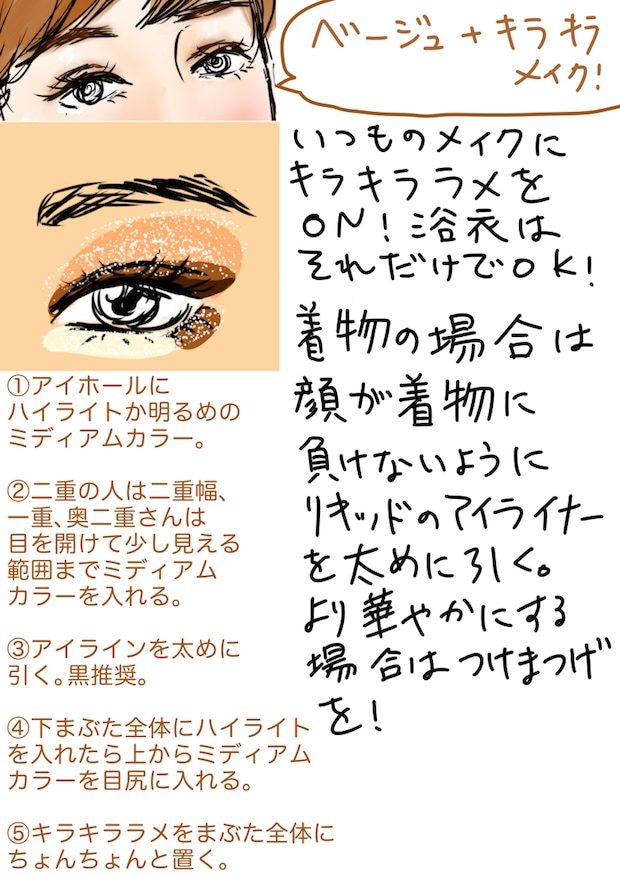 ベージュ+キラキラ
メイク!
いつものメイクに
キラキララメを
ON!浴衣は
それだけでOK!
着物の場合は
顔が着物に
負けないように
リキッドのアイライナー
を太めに引く。
より華やかにする
場合はつけまつげ
を!
①アイホールに
ハイライトか明るめの
ミディアムカラー。
②二重の人は二重幅、
一重、奥二重さんは
目を開けて少し見える
範囲までミディアム
カラーを入れる。
③アイラインを太めに
引く。黒推奨。
④下まぶた全体にハイライト
を入れたら上からミディアム
カラーを目尻に入れる。
⑤キラキララメをまぶた全体に
ちょんちょんと置く。